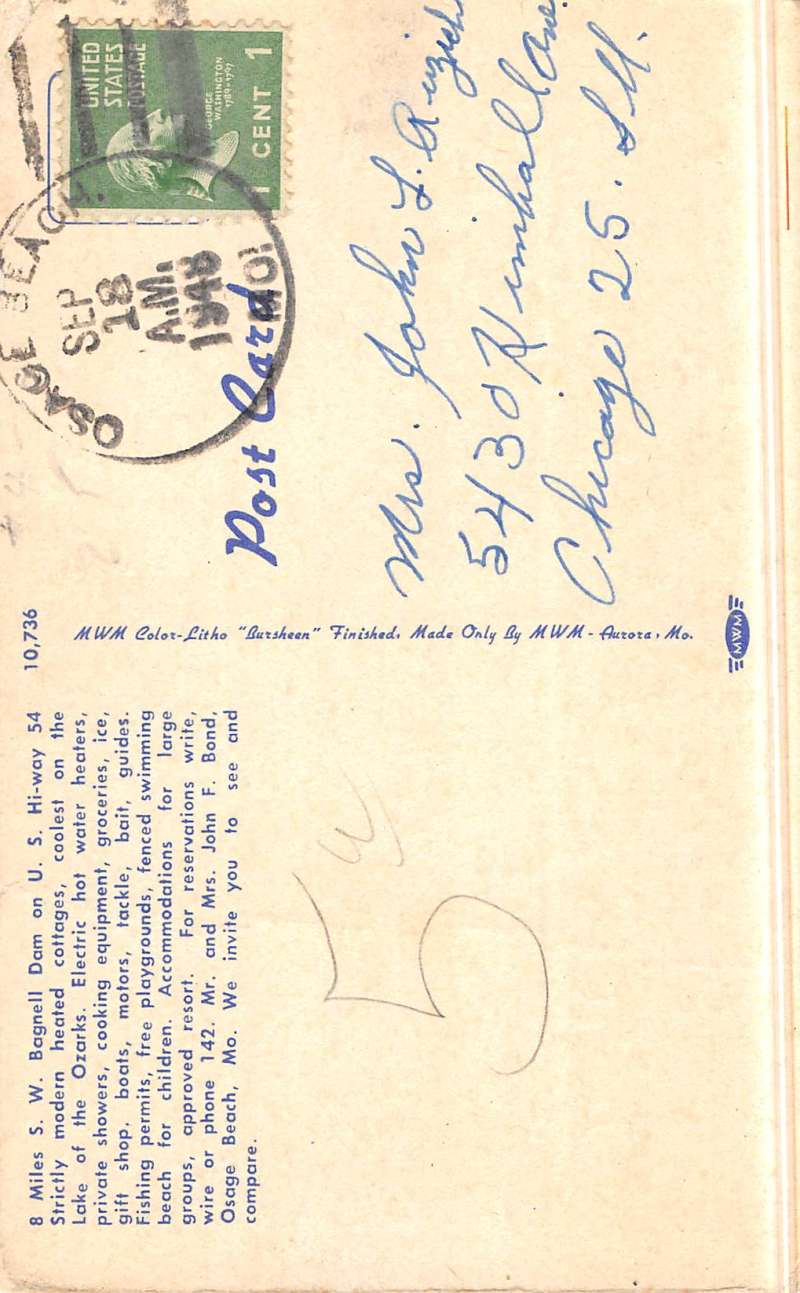 8 Miles S. W. Bagnell Dam on U. S. Hi-way 54
Strictly modern heated cottages, coolest on the
Lake of the Ozarks. Electric hot water heaters,
private showers, cooking equipment, groceries, ice,
gift shop, boats, motors, tackle, bait, guides.
Fishing permits, free playgrounds, fenced swimming
beach for children. Accommodations for large
groups, approved resort. For reservations write,
wire or phone 142. Mr. and Mrs. John F. Bond,
Osage Beach, Mo. We invite you to see and
compare.
5
10,736
MWM Color-Litho "Bursheen" Finished. Made Only By MWM - Aurora, Mo.
MWM
OSAGE BEACH.
SEP
18
A.M.
MO.
UNITED
STATES
POSTAGE
GEORGE
WASHINGTON
1789-1797
1 CENT 1
Post Card
Mrs. John L.
5430 Kimball Ave.
Chicago 25. Ill.